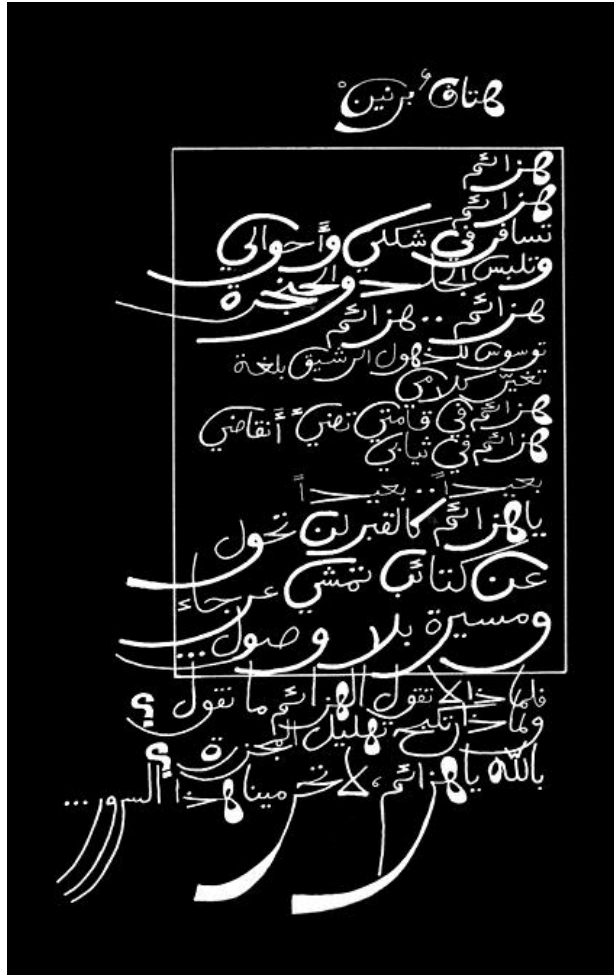 هتافٌ برنينْ
هزائم
هزائم
تسافر في شكلي وأحوالي
وتلبس الجلد والحنجرة
هزائم .. هزائم
توسوس للخهول الرشيق بلغة
تغيّر كلامي
هزائم في قامتي تضيئ أنقاضي
هزائم في ثيابي
بعيداً .. بعيداً
يا هزائم كالقبر لن تحول
عن كتائب تمشي عرجاء
ومسيرة بلا وصول ...
فلماذا لا تقول الهزائم ما تقول ؟
ولماذا تهليل المجزرة ؟
بالله يا هزائم، لا تحرمينا هذا السور ...